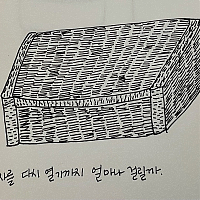 다시 열기까지 얼마나 걸릴까.